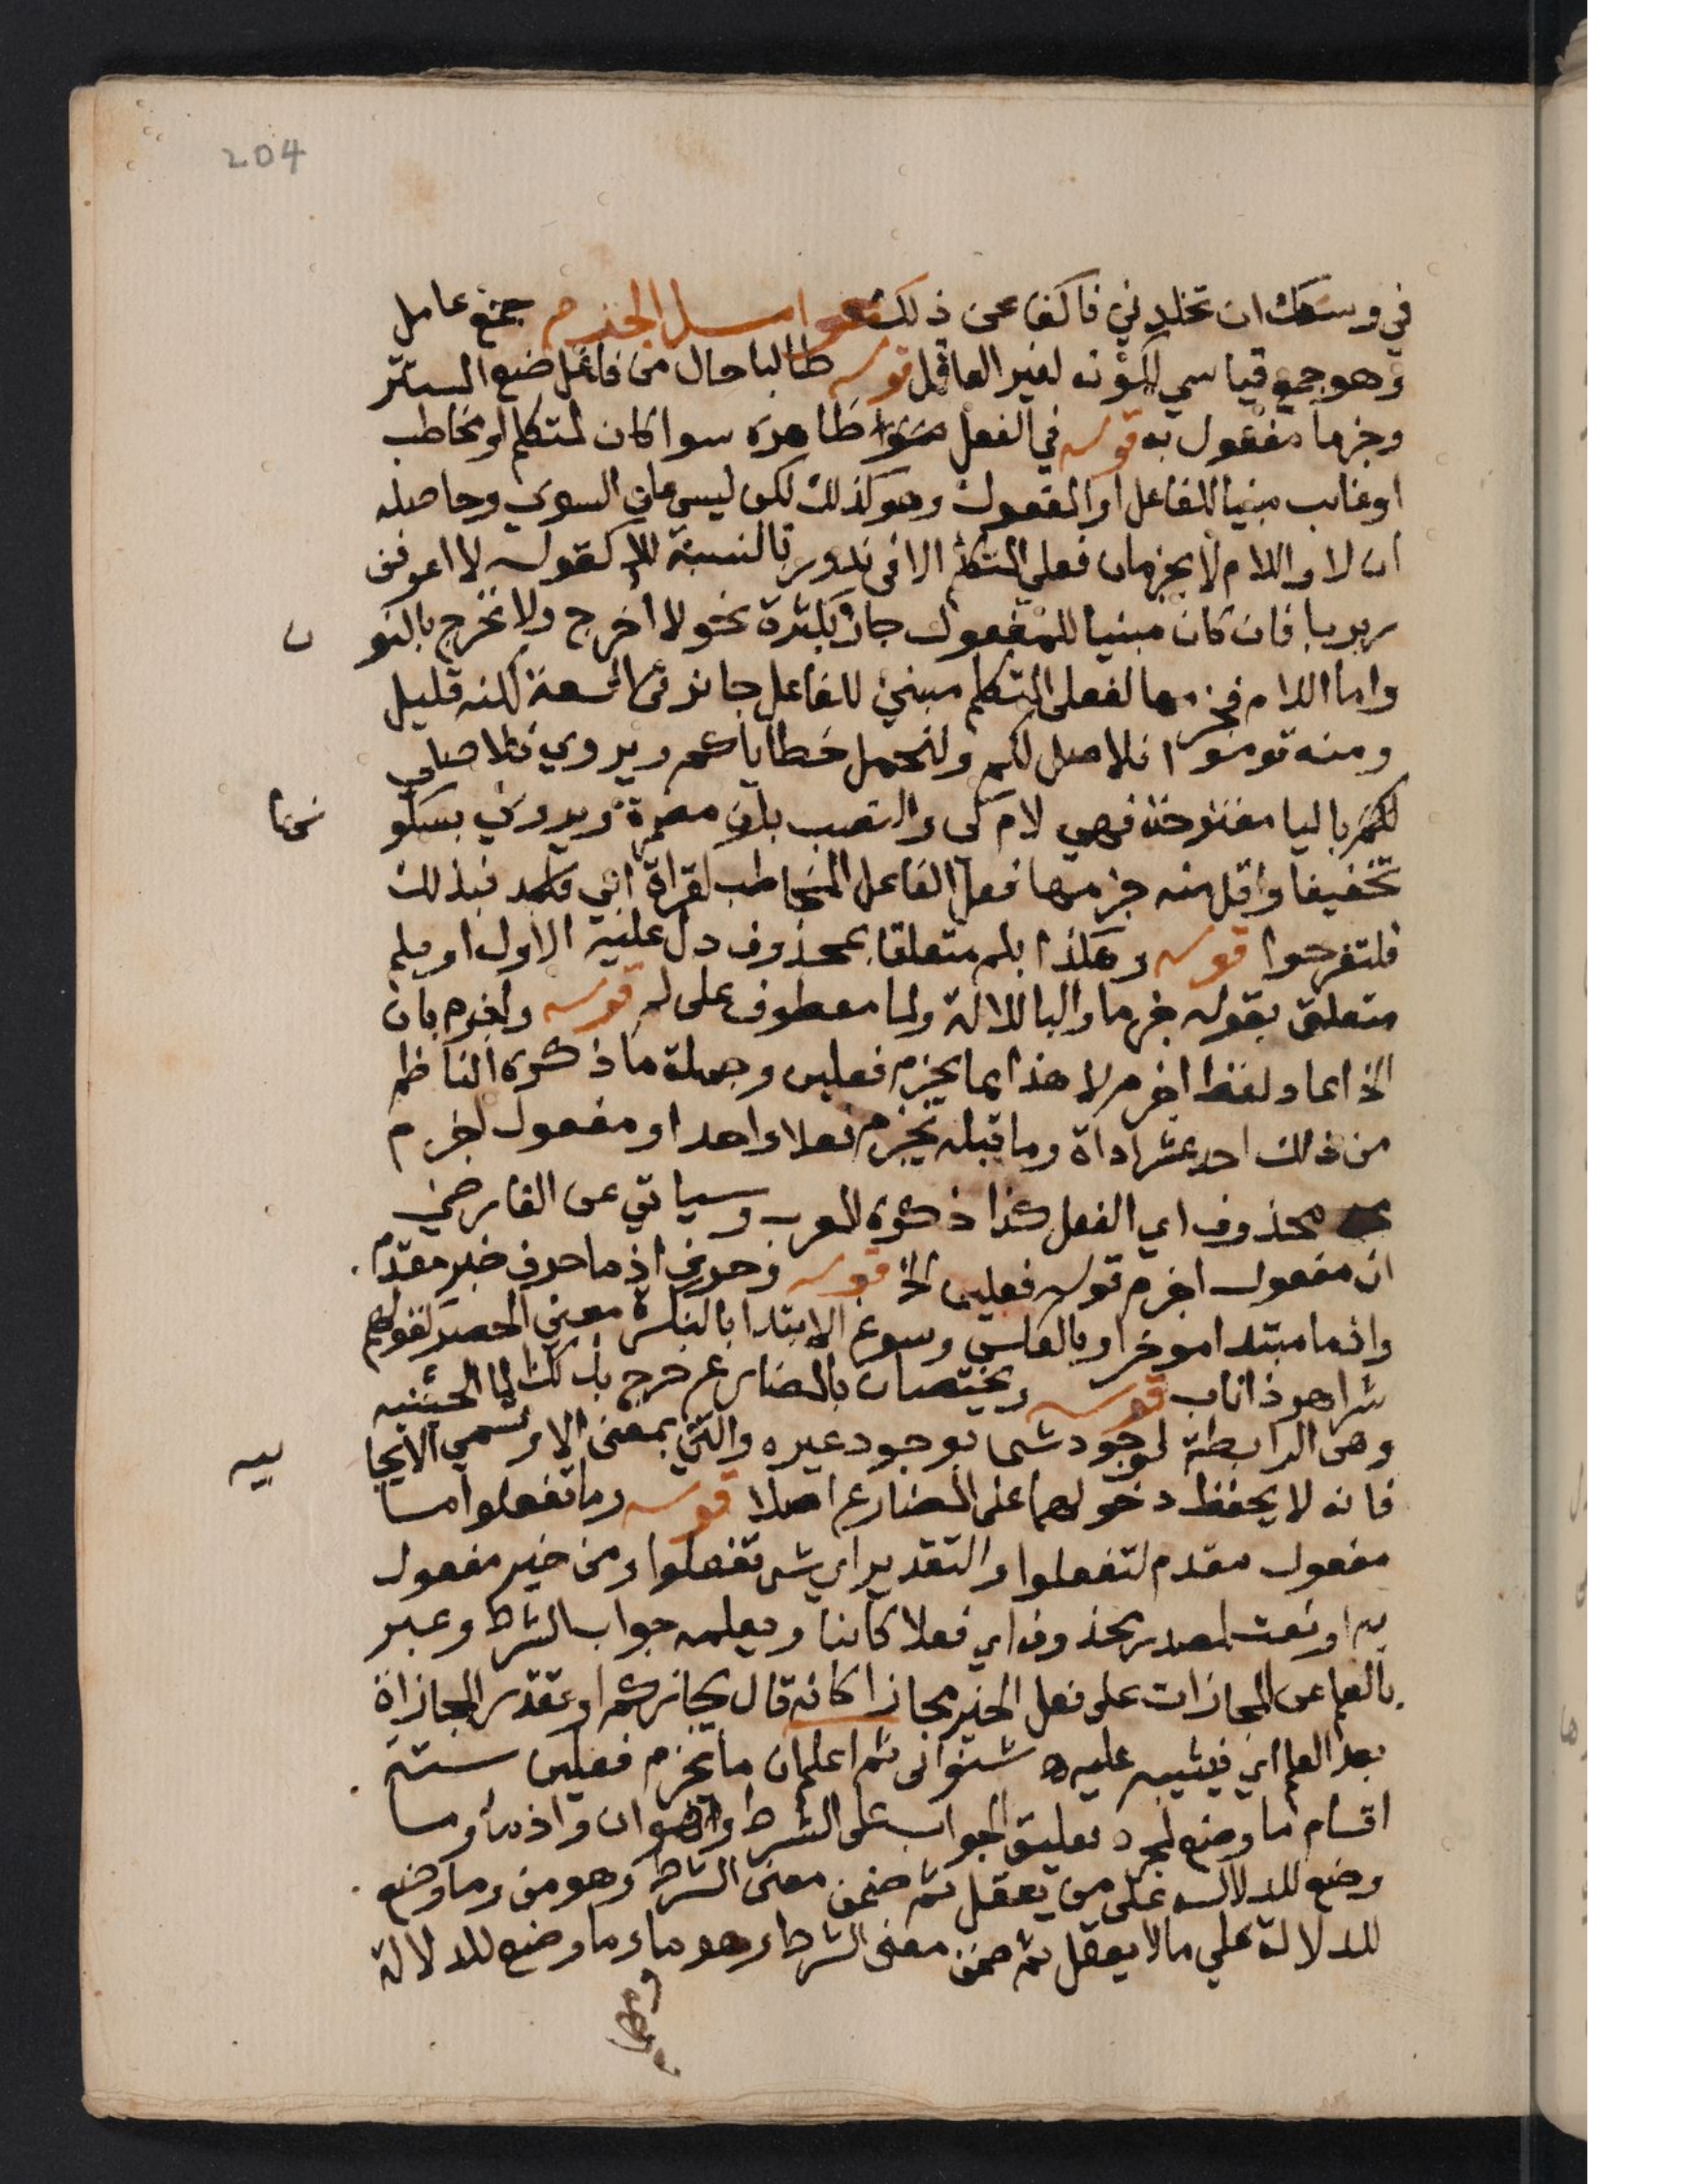 204
في وسعك ان تخلدني فاكفا عن ذلك عوامل الجزم جمع عامل
وهو جمع قياسي لكونه لغير العاقل قوله طالبا حال من فاعل ضع المستتر
وجزما مفعول به قوله في الفعل ظاهره سوا كان لمتكلم او مخاطب
او غايب مبنيا للفاعل او المفعول وهو كذلك لكن ليس على السوي وحاصله
ان لا واللام لا يجزمان فعلي المتكلم الا في ندور بالنسبة للا كقوله لا اعرفن
ربربا فان كان مبنيا للمفعول جاز بكثرة نحو لا اخرج ولا نخرج بالنو
ن
واما اللام فجزمها لفعلي المتكلم مبنيي للفاعل جائز في السعة لكنه قليل
ومنه قوموا فلاصل لكم ولنحمل خطاياكم ويروي فلاصلي
لكم باليا مفتوحة فهي لام كي والنصب بان مضمرة ويروي بسكو
نها
تخفيفا واقل منه جزمها فعل الفاعل المخاطب لقراة ابي فبذلك
فلتفرحوا قوله وهكذا بلم متعلقا بمحذوف دل عليه الاول او بلم
متعلق بقوله جزما والبا للالة ولما معطوف على لم قوله واجزم بان
الخ اعاد لفظ اجزم لا هذا بما يجزم فعلين وجملة ما ذكره الناظم
من ذلك احد عشر اداة وما قبله يجزم فعلا واحدا ومفعول اجزم
محذوف اي الفعل كذا ذكره المعرب وسياتي عن الفارضي
ان مفعول اجزم قوله فعلين الخ قوله وحرف اذ ما حرف خبر مقدم
واذما مبتدا موخر او بالعكس وسوغ الابتدا بالنكرة معني الحصر كقولهم
شر اهر ذا ناب قوله ويختصان بالمضارع خرج بذلك لما الحينيه
وهي الرابطة لوجود شي بوجود غيره والتي بمعنى الا وتسمي الايجا
بيه
فانه لا يحفظ دخولهما على المضارع اصلا قوله وما تفعلوا ما
مفعول مقدم لتفعلوا والتقدير اي شي تفعلوا ومن خير مفعول
به او نعت لمصدر محذوف اي فعلا كائنا ويعلمه جواب الشرط وعبر
بالعلم عن المجازات على فعل الخير مجازا كانه قال يجازيكم او تقدر المجازاة
بعد العلم اي فيثيبه عليه ه شنواني ثم اعلم ان ما يجزم فعلين ستة
اقسام ما وضع لمجرد تعليق الجواب على الشرط وهو ان واذما وما
وضع للدلالة على من يعقل ثم ضمن معنى الشرط وهو من وما وضع
للدلالة علي ما لا يعقل ثم ضمن معنى الشرط وهو ما وما وضع للدلالة
ومهما